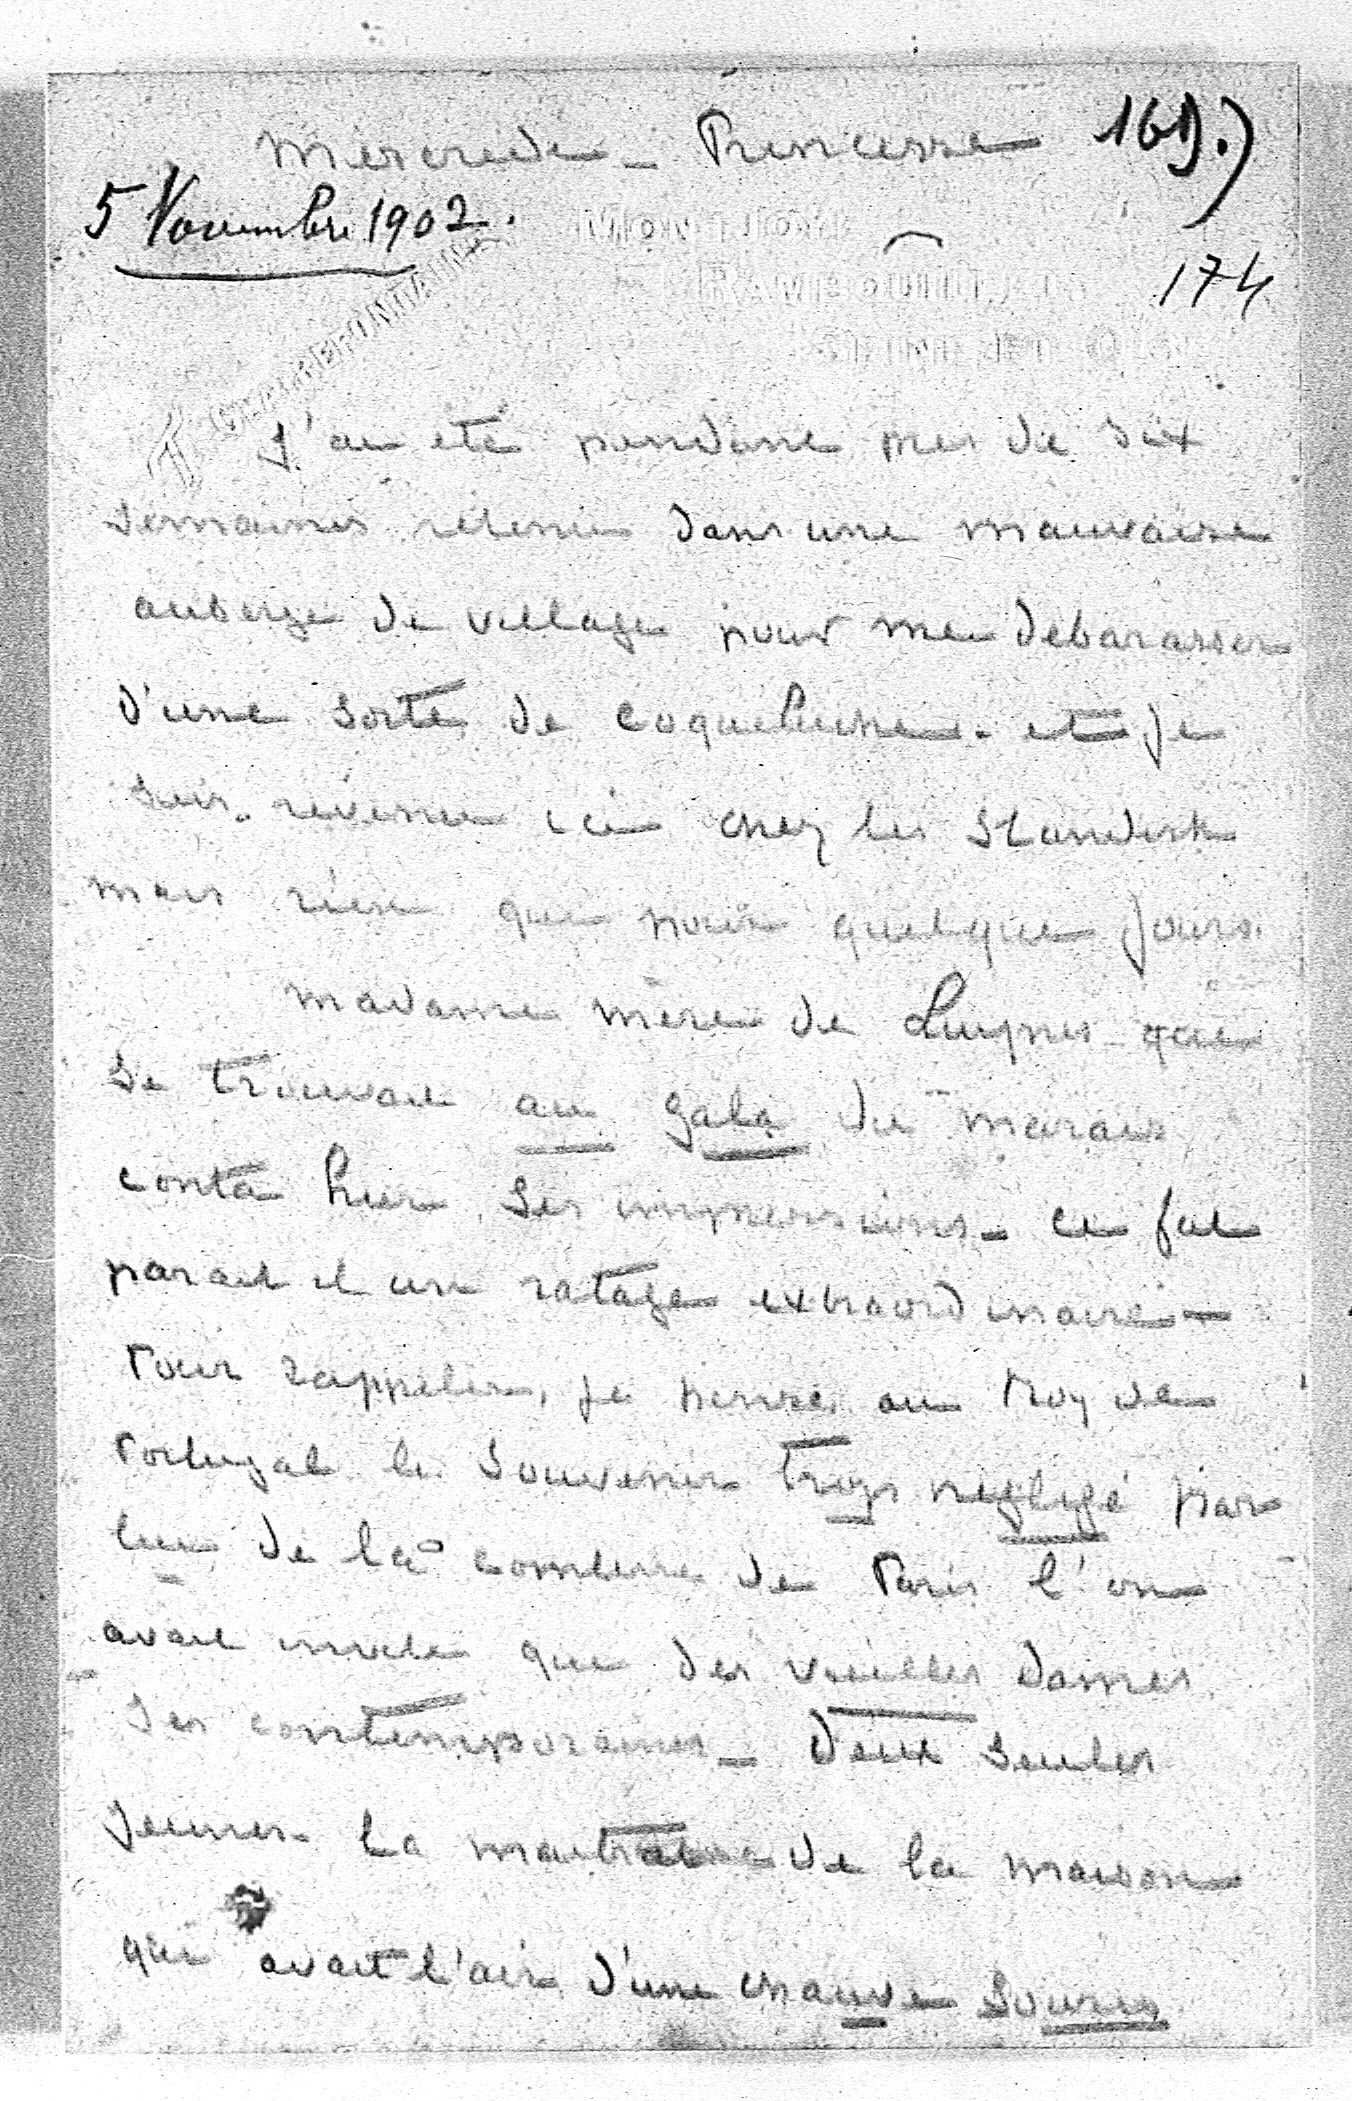 Mercredi - Princesse 169.)
5 Novembre 1902.
MONTJOYE
RAMBOUILLET 174
SEINE ET OISE
CLAIREFONTAINE
J'ai eté pendant pres de six
semaines retenu dans une mauvaise
auberge de village pour me debarasser
d'une sorte de coqueluche. et je
suis revenu ici chez les Standish
mais rien que pour quelque jours.
Madame mère de Luynes qui
se trouvait au gala du Marais
conta hier ses impressions - ce fut
parait il un ratage extraordinaire -
Pour rappeler, je pense, au Roy de
Portugal le souvenir trop negligé par
lui de la comtesse de Paris l'on
avait invité que des vieilles dames
ses contemporaines - Deux seules
jeunes. La maitresse de la maison
qui avait l'air d'une chauve souris